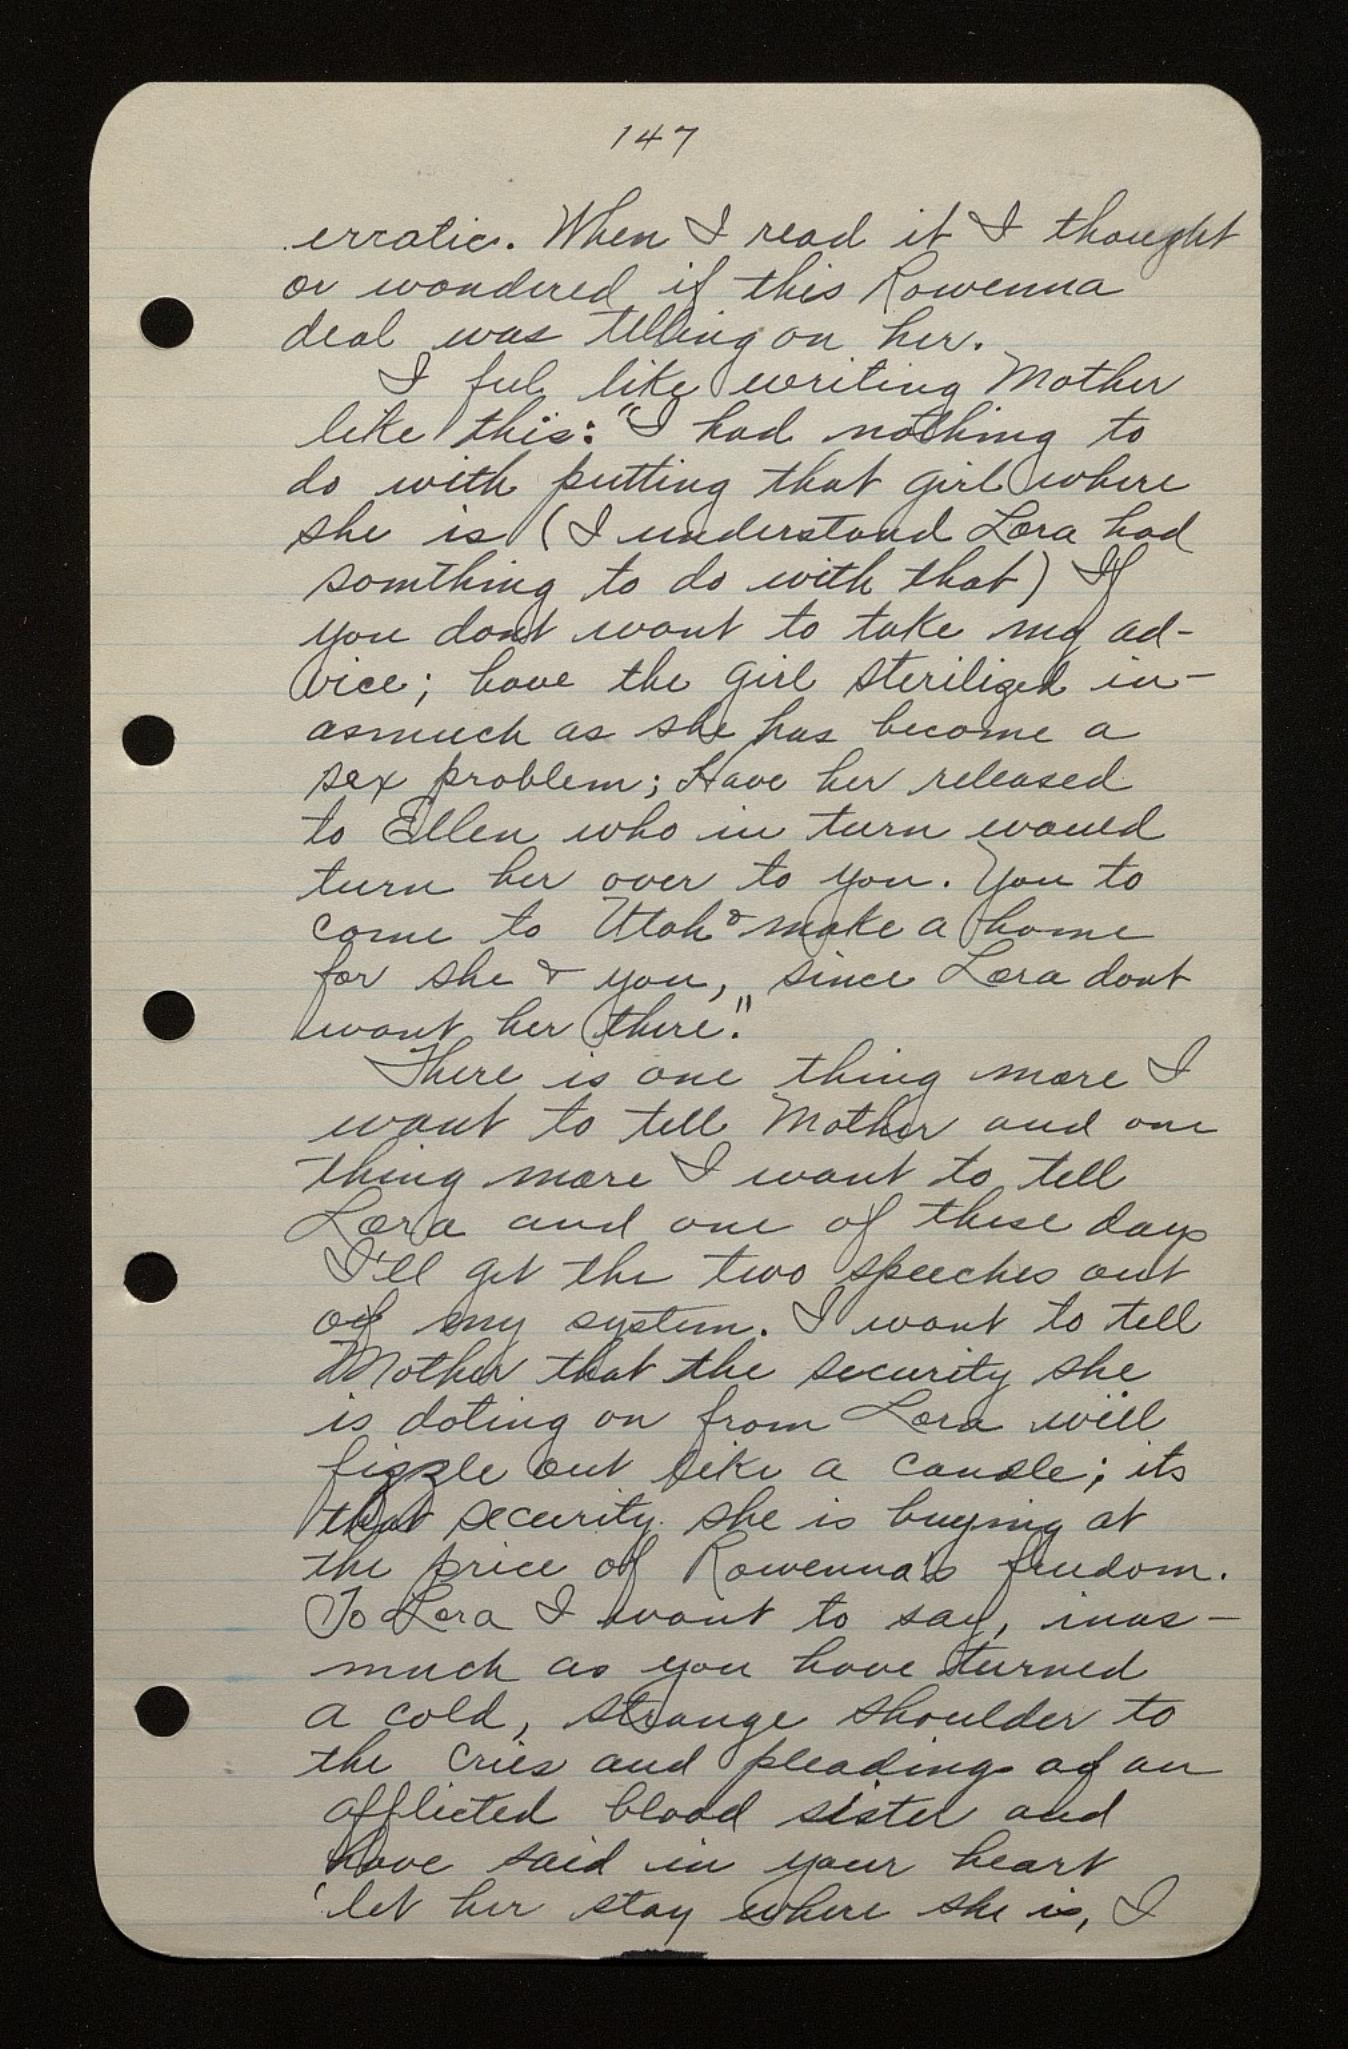 147
erratic. When I read it I thought
or wondered if this Rowenna
deal was telling on her.
I feel like writing Mother
like this: "I had nothing to
do with putting that girl where
she is (I understand Lora had
somthing to do with that) If
you dont want to take my ad-
vice; have the girl sterilized in-
asmuch as she has become a
sex problem; Have her released
to Ellen who in turn would
turn her over to you. You to
come to Utah & make a home
for she & you, since Lora dont
want her there."
There is one thing more I
want to tell Mother and one
thing more I want to tell
Lora and one of these days
I'll get the two speeches out
of my system. I want to tell
Mother that the security she
is doting on from Lora will
fizzle out like a candle; its
that security she is buying at
the price of Rowenna's freedom.
To Lora I want to say, inas-
much as you have turned
a cold, strange shoulder to
the cries and pleadings of an
afflicted blood sister and
have said in your heart
'let her stay where she is, I